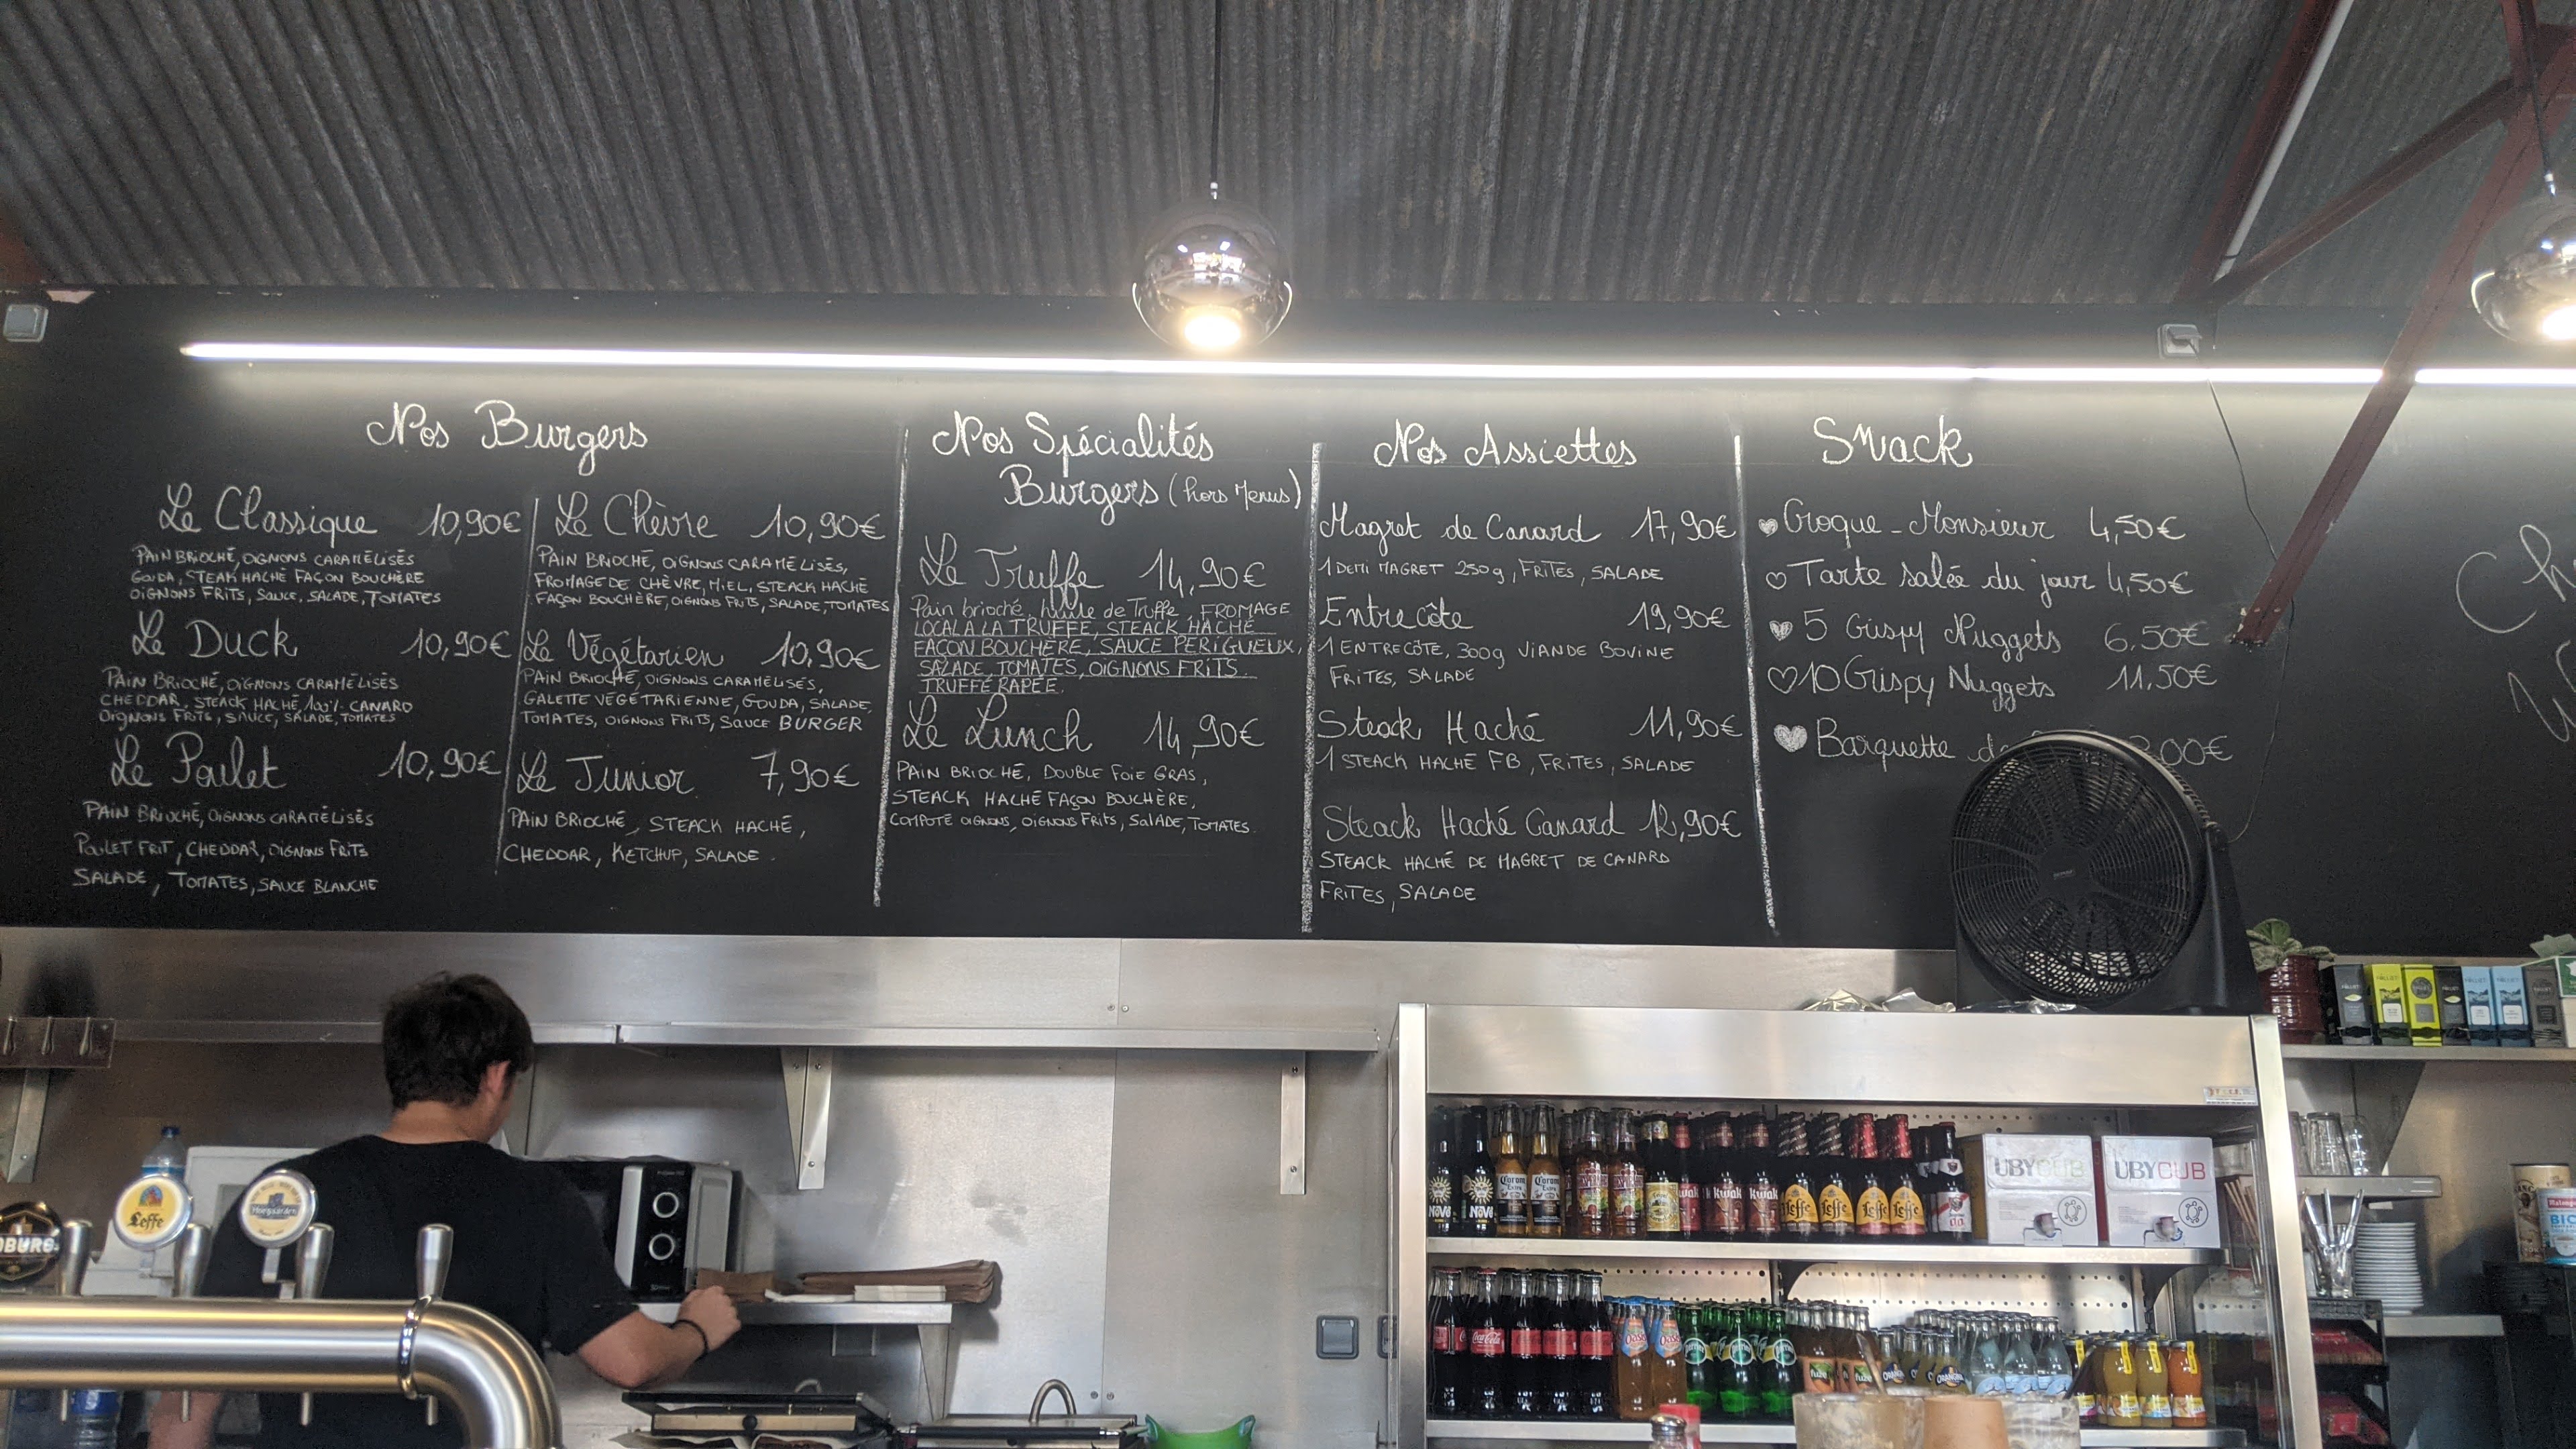 Nos Burgers
Le Classique 10,90€
PAIN BRIOCHÉ, OIGNONS CARAMÉLISÉS
GOUDA, STEAK HACHÉ FAÇON BOUCHÈRE
OIGNONS FRITS, SAUCE, SALADE, TOMATES
Le Duck 10,90€
PAIN BRIOCHÉ, OIGNONS CARAMÉLISÉS
CHEDDAR, STEACK HACHÉ, 100% CANARD
OIGNONS FRITS, SAUCE, SALADE, TOMATES
Le Poulet 10,90€
PAIN BRIOCHÉ, OIGNONS CARAMÉLISÉS
POULET FRIT, CHEDDAR, OIGNONS FRITS
SALADE, TOMATES, SAUCE BLANCHE
Le Chèvre 10,90€
PAIN BRIOCHÉ, OIGNONS CARAMÉLISÉS,
FROMAGE DE CHÈVRE, MIEL, STEACK HACHÉ
FAÇON BOUCHÈRE, OIGNONS FRITS, SALADE, TOMATES
Le Végétarien 10,90€
PAIN BRIOCHÉ, OIGNONS CARAMÉLISÉS,
GALETTE VÉGÉTARIENNE, GOUDA, SALADE,
TOMATES, OIGNONS FRITS, SAUCE BURGER
Le Junior 7,90€
PAIN BRIOCHÉ, STEACK HACHÉ,
CHEDDAR, KETCHUP, SALADE.
Nos Spécialités
Burgers (hors Menus)
Le Truffe 14,90€
Pain brioché, huile de Truffe, FROMAGE
LOCAL A LA TRUFFE, STEACK HACHÉ
FAÇON BOUCHÈRE, SAUCE PÉRIGUEUX,
SALADE, TOMATES, OIGNONS FRITS.
TRUFFE RAPÉE.
Le Lunch 14,90€
PAIN BRIOCHÉ, DOUBLE FOIE GRAS,
STEACK HACHÉ FAÇON BOUCHÈRE,
COMPOTÉ OIGNONS, OIGNONS FRITS, SALADE, TOMATES.
Nos Assiettes
Magret de Canard 17,90€
1 DEMI MAGRET 250g, FRITES, SALADE
Entrecôte 19,90€
1 ENTRECÔTE, 300g VIANDE BOVINE
FRITES, SALADE
Steack Haché 11,90€
1 STEACK HACHÉ FB, FRITES, SALADE
Steack Haché Canard 12,90€
STEACK HACHÉ DE MAGRET DE CANARD
FRITES, SALADE
Snack
Croque-Monsieur 4,50€
Tarte salée du jour 4,50€
5 Crispy Nuggets 6,50€
10 Crispy Nuggets 11,50€
Barquette
Ch
Leffe
Hoegaarden
NOVO
NOVO
Corona
Extra
Corona
Extra
Kwak
Kwak
Leffe
Leffe
Leffe
Leffe
UBYCUB
UBYCUB
Coca-Cola
Oasis
Oasis
Perrier
Perrier
Perrier
fuze
fuze
ORANGINA
BIO